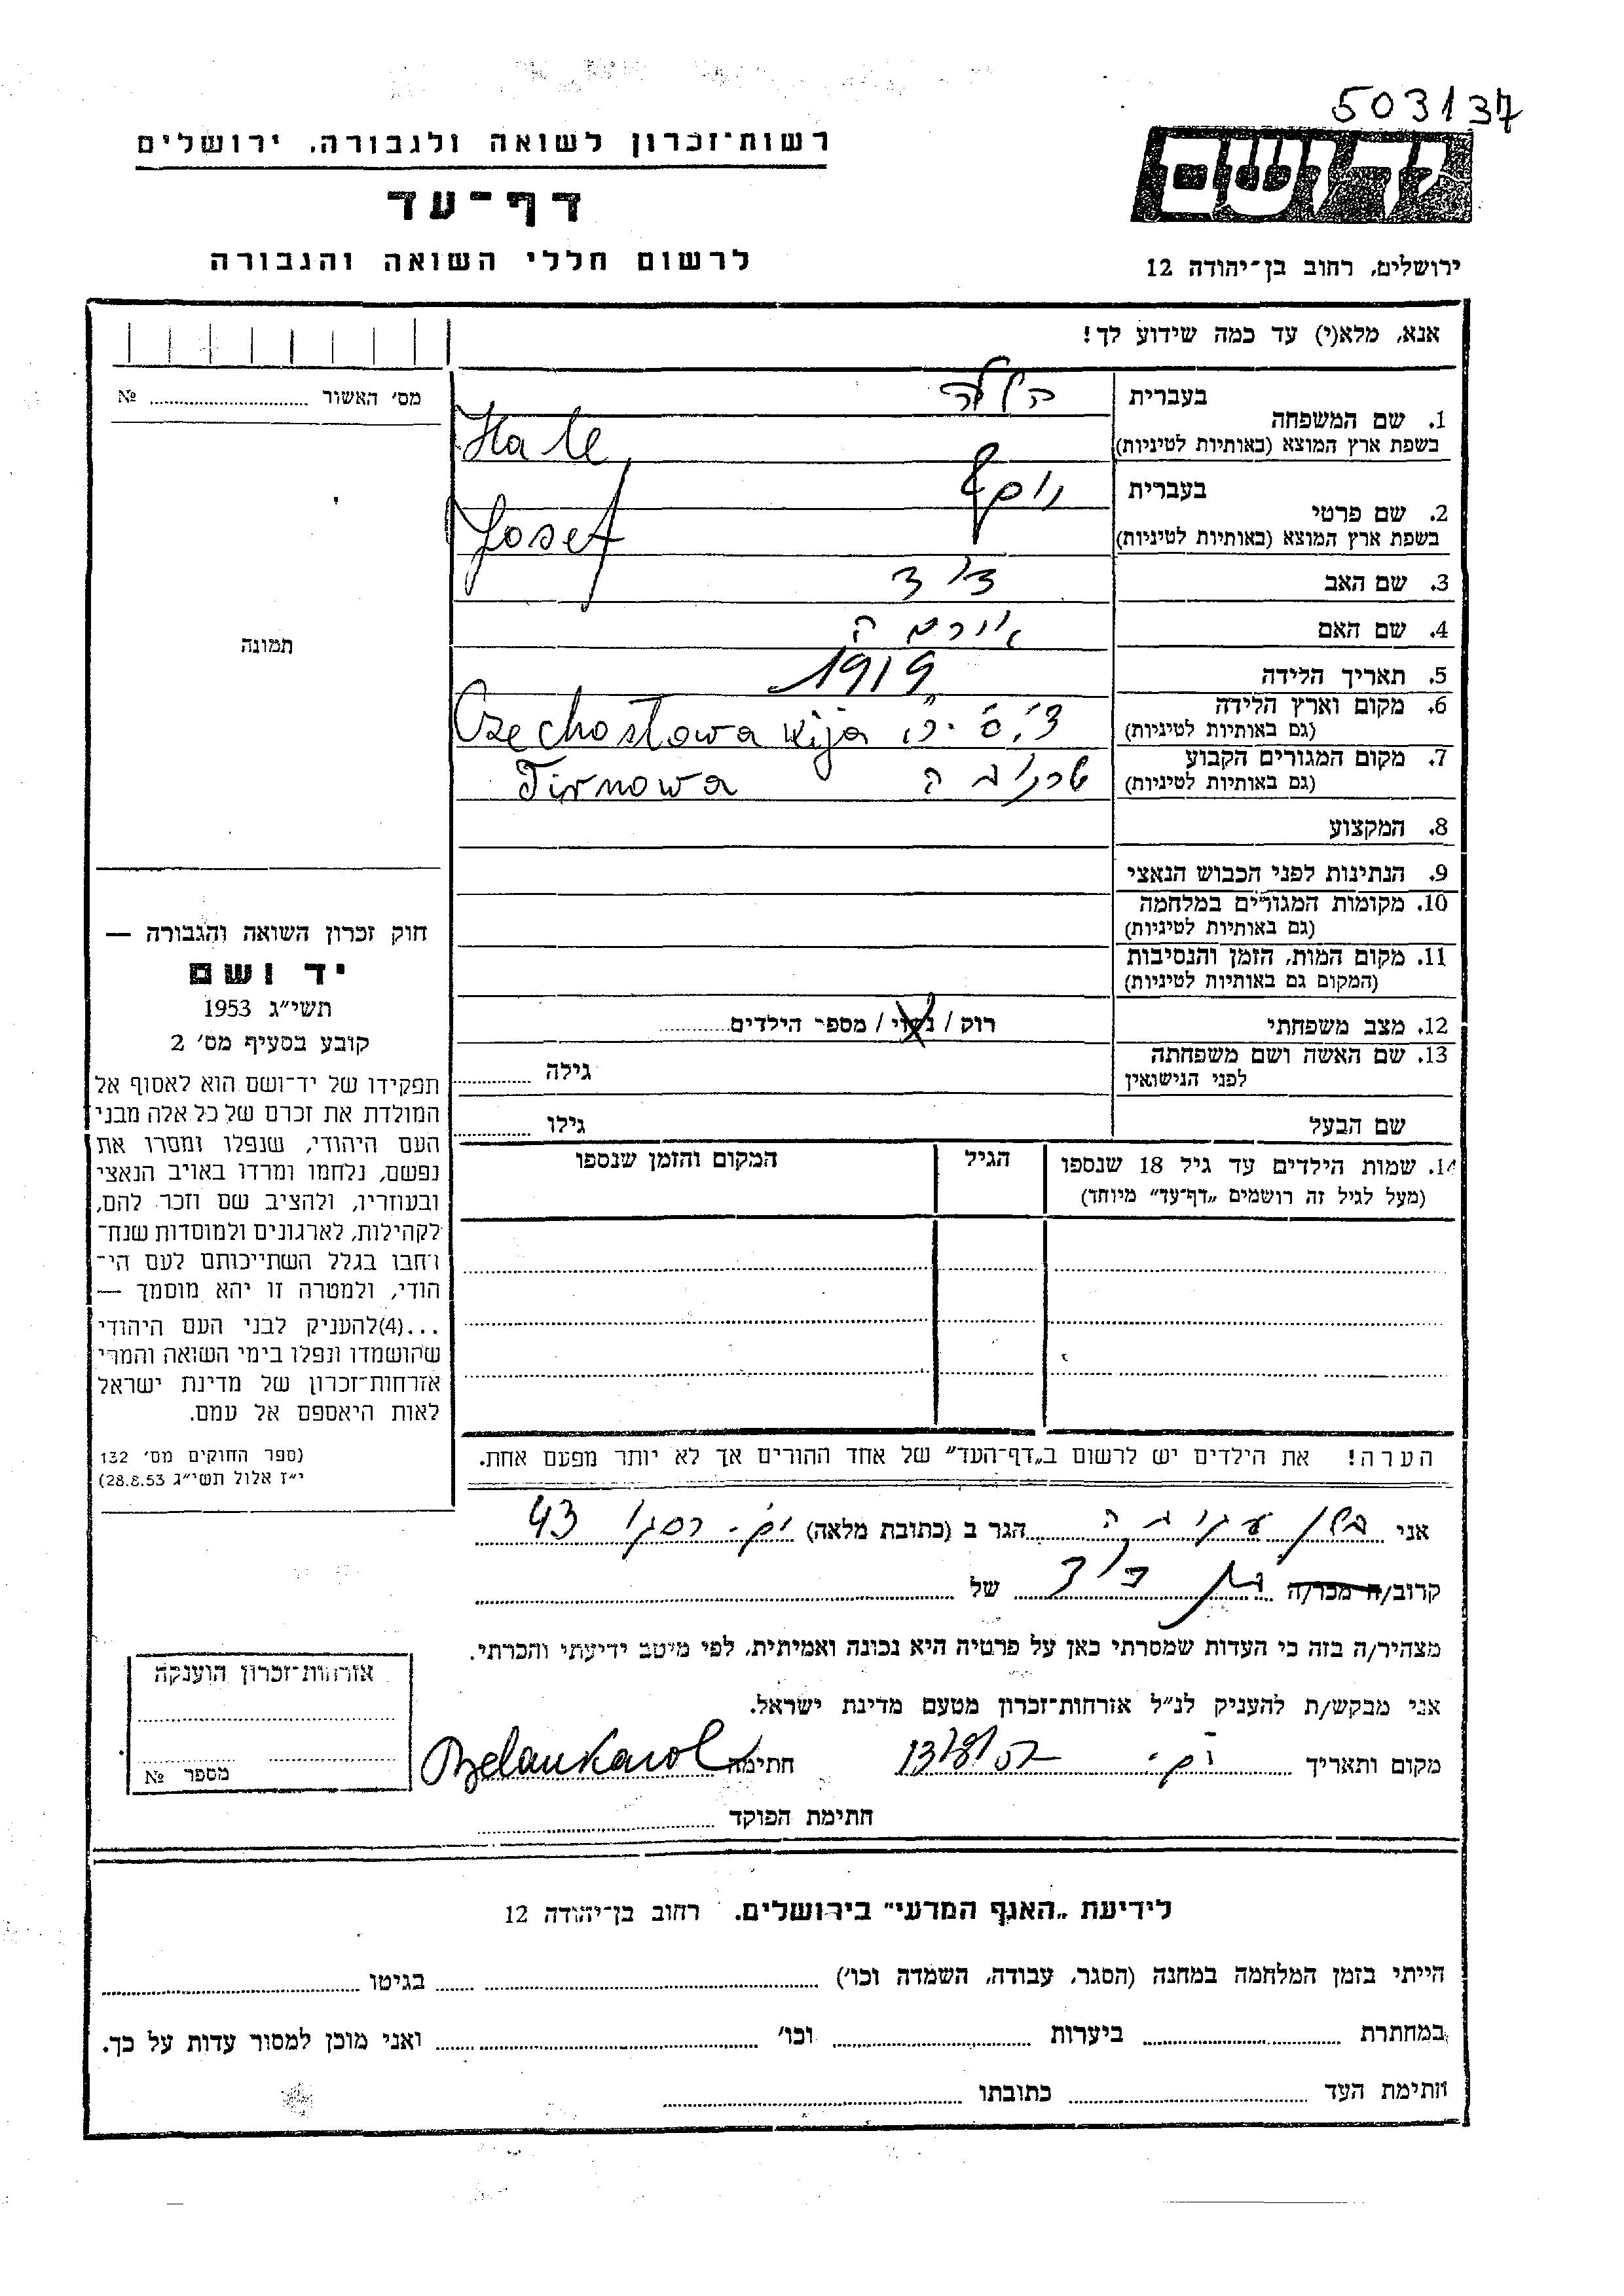 503137
יד ושם
רשות־זכרון לשואה ולגבורה, ירושלים
דף־עד
לרשום חללי השואה והגבורה
ירושלים, רחוב בן־יהודה 12
אנא, מלא(י) עד כמה שידוע לך!
מס׳ האשור ........ №
תמונה
1. שם המשפחה
בעברית
בשפת ארץ המוצא (באותיות לטיניות) Halle
2. שם פרטי
בעברית יוסף
בשפת ארץ המוצא (באותיות לטיניות) Josef
3. שם האב
4. שם האם
5. תאריך הלידה 1919
6. מקום וארץ הלידה
(גם באותיות לטיניות) Czechosłowakija
7. מקום המגורים הקבוע
(גם באותיות לטיניות) Tirnowa
8. המקצוע
9. הנתינות לפני הכבוש הנאצי
10. מקומות המגורים במלחמה
(גם באותיות לטיניות)
11. מקום המות, הזמן והנסיבות
(המקום גם באותיות לטיניות)
12. מצב משפחתי רוק / נשוי / מספר הילדים
13. שם האשה ושם משפחתה
לפני הנישואין גילה
שם הבעל גילו
14. שמות הילדים עד גיל 18 שנספו
(מעל לגיל זה רושמים „דף־עד״ מיוחד)
הגיל
המקום והזמן שנספו
חוק זכרון השואה והגבורה —
יד ושם
תשי״ג 1953
קובע בסעיף מס׳ 2
תפקידו של יד־ושם הוא לאסוף אל
המולדת את זכרם של כל אלה מבני
העם היהודי, שנפלו ומסרו את
נפשם, נלחמו ומרדו באויב הנאצי
ובעוזריו, ולהציב שם וזכר להם,
לקהילות, לארגונים ולמוסדות שנח־
רחבו בגלל השתייכותם לעם הי־
הודי, ולמטרה זו יהא מוסמך —
...(4)להעניק לבני העם היהודי
שהושמדו ונפלו בימי השואה והמרי
אזרחות־זכרון של מדינת ישראל
לאות היאספם אל עמם.
(ספר החוקים מס׳ 132
י״ז אלול תשי״ג 28.8.53)
הערה! את הילדים יש לרשום ב„דף־העד״ של אחד ההורים אך לא יותר מפעם אחת.
אני הגר ב (כתובת מלאה) 43
קרוב/ה מכר/ה של
מצהיר/ה בזה כי העדות שמסרתי כאן על פרטיה היא נכונה ואמיתית, לפי מיטב ידיעתי והכרתי.
אני מבקש/ת להעניק לנ״ל אזרחות־זכרון מטעם מדינת ישראל.
מקום ותאריך חתימה
חתימת הפוקד
אזרחות־זכרון הוענקה
מספר №
לידיעת „האגף המדעי״ בירושלים, רחוב בן־יהודה 12
הייתי בזמן המלחמה במחנה (הסגר, עבודה, השמדה וכו׳) בגיטו
במחתרת ביערות וכו׳ ואני מוכן למסור עדות על כך.
חתימת העד כתובתו